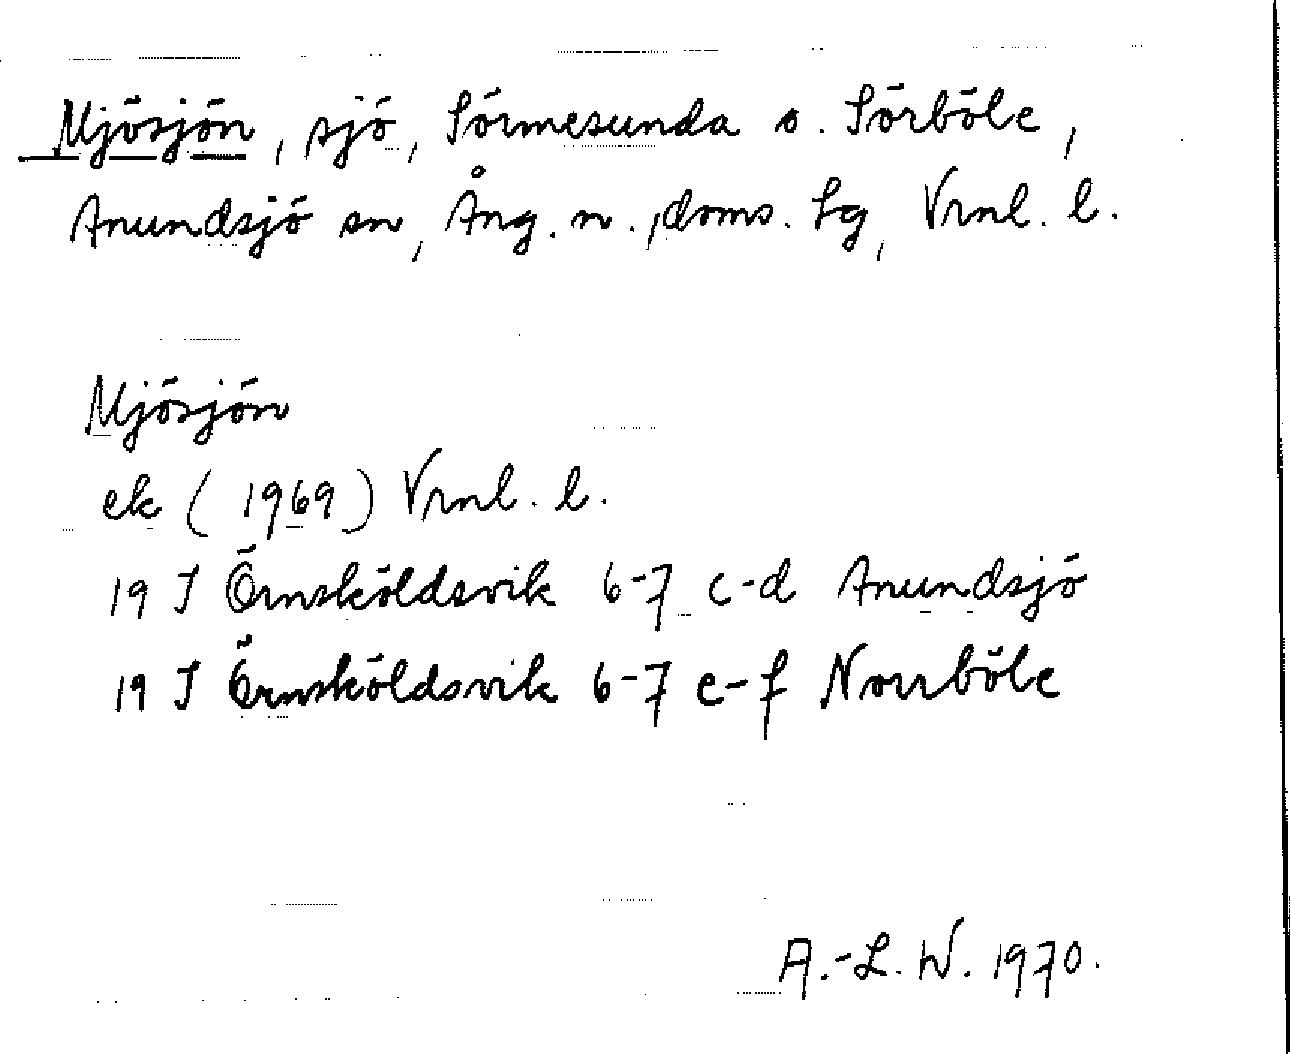 Mjösjön, sjö, Sörmesunda o. Sörböle,
Anundsjö sn, Ång. n., doms. lg, Vrnl. l.
Mjösjön
ek (1969) Vrnl. l.
19 J Örnsköldsvik 6-7 c-d Anundsjö
19 J Örnsköldsvik 6-7 e-f Norrböle
A.-L. W. 1970.